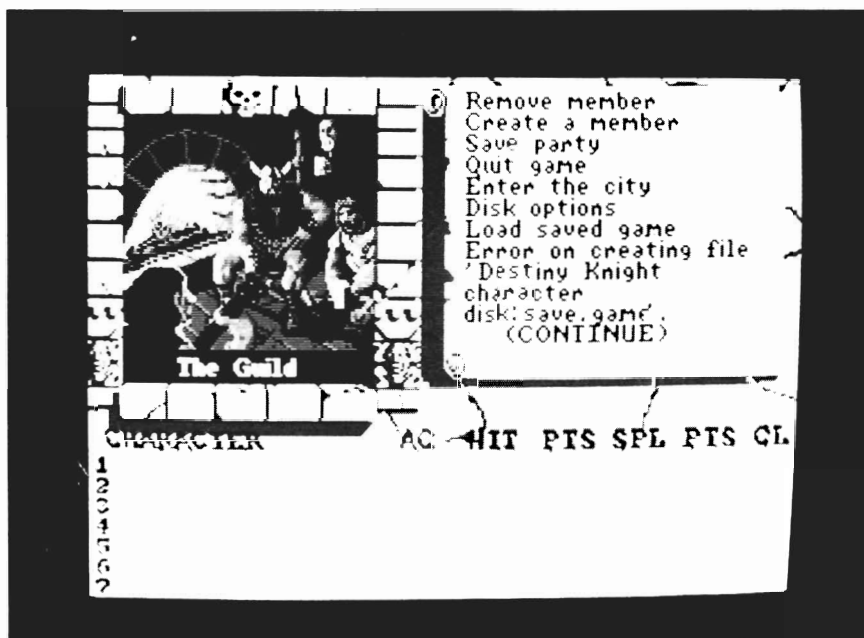 Remove member
Create a member
Save party
Quit game
Enter the city
Disk options
Load saved game
Error on creating file
'Destiny Knight
character
disk:save.game'.
(CONTINUE)
The Guild
CHARACTER AC HIT PTS SPL PTS CL
1
2
3
4
5
6
7